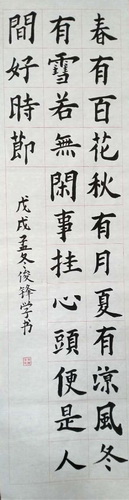 春有百花秋有月夏有涼風冬
有雪若無閑事挂心頭便是人
間好時節
戊戌孟冬俊锋学书